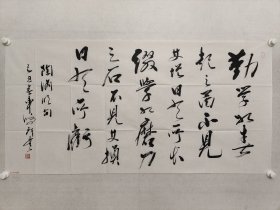 勤学如春
起之苗不见
其增日有所长
辍学如磨刀
之石不见其损
日有所虧
陶渊明句
己丑
书